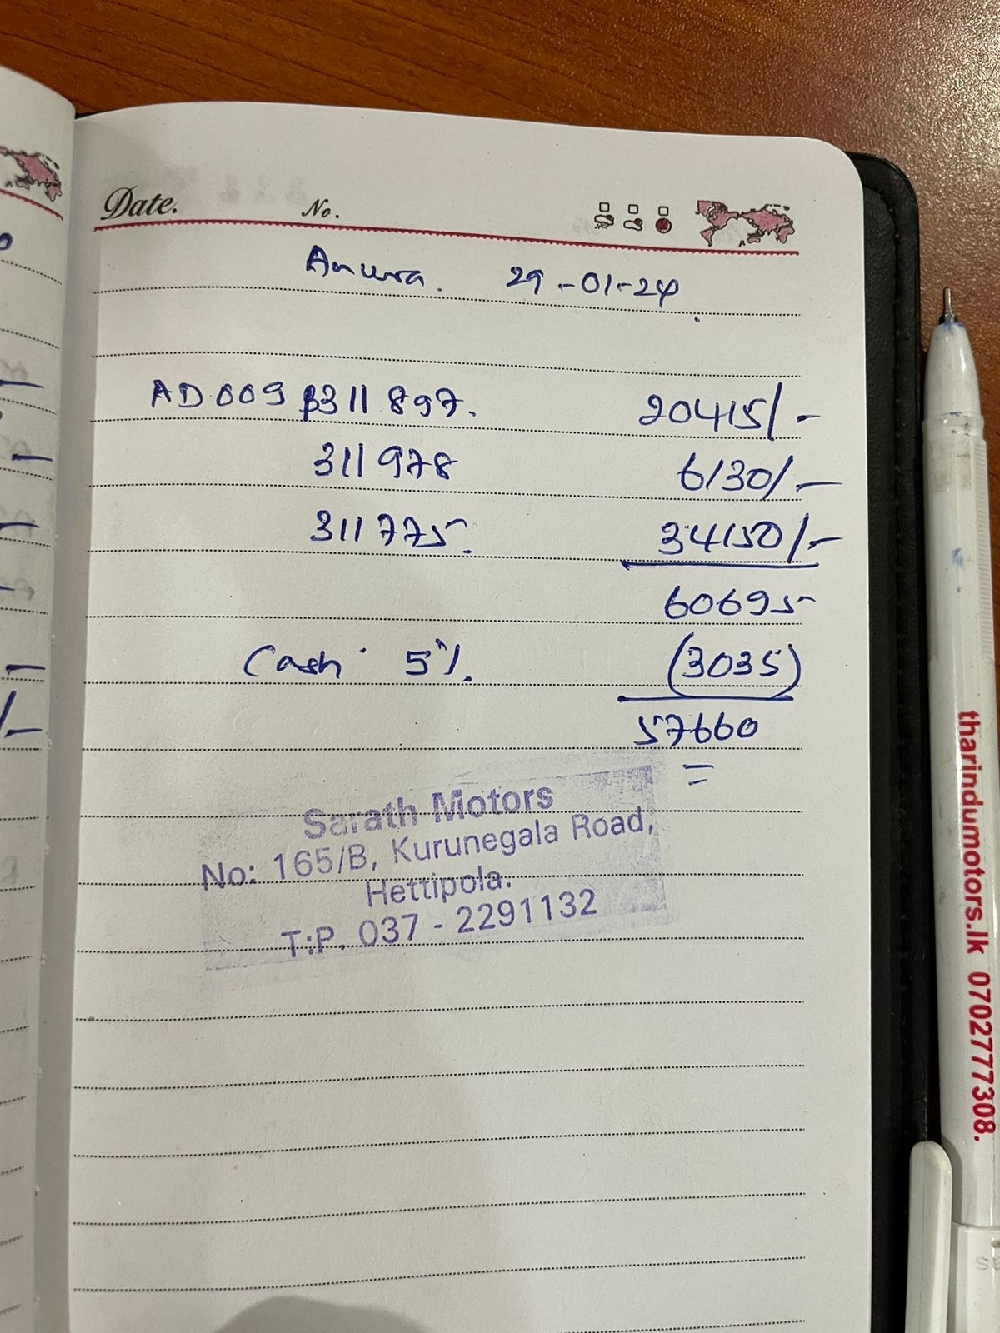 Date. No.
Anura. 29-01-24
AD009 B311897. 20415/-
311978 6130/-
311775 34150/-
60695
Cash 5%. (3035)
57660
Sarath Motors
No: 165/B, Kurunegala Road,
Hettipola.
T.P. 037 - 2291132
tharindumotors.lk 0702777308.